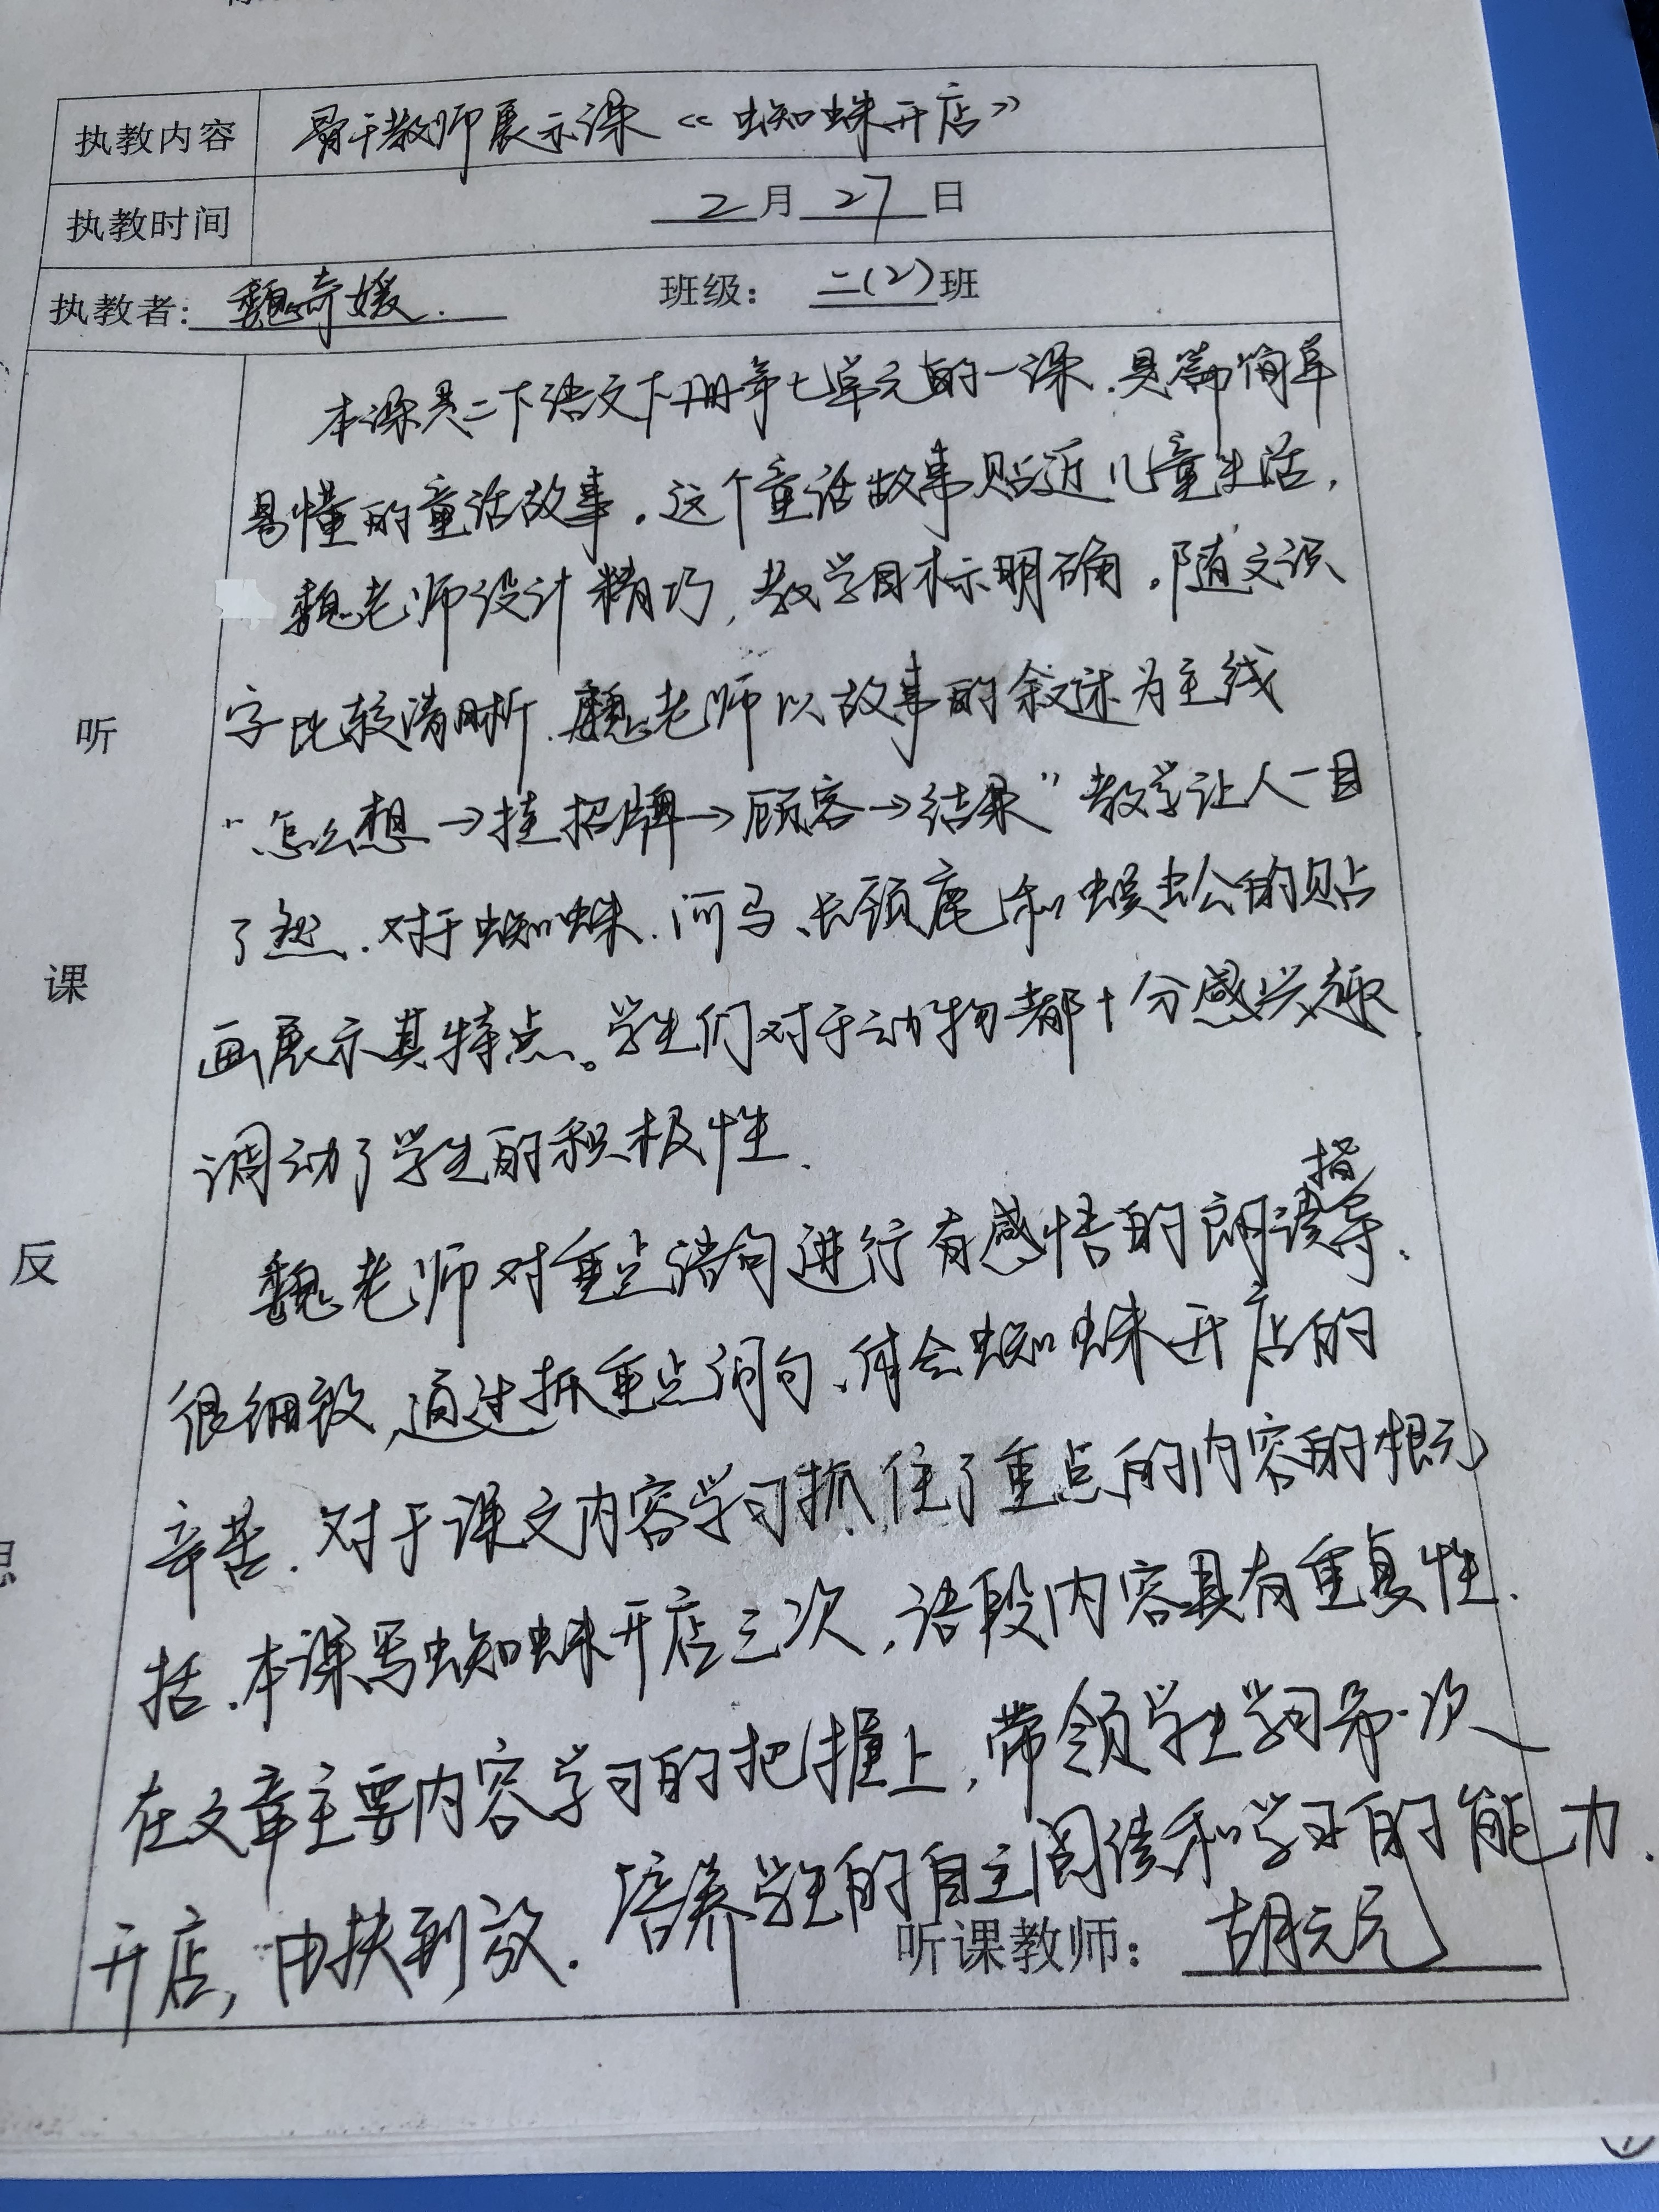 执教内容 骨干教师展示课《蜘蛛开店》
执教时间 2月27日
执教者: 魏奇媛. 班级: 二(2)班
听课反思
本课是二下语文下册第七单元的一课.是篇简单
易懂的童话故事.这个童话故事贴近儿童生活,
魏老师设计精巧,教学目标明确.随文识
字比较清晰.魏老师以故事的叙述为主线
"怎么想→挂招牌→顾客→结果"教学让人一目
了然.对于蜘蛛.河马、长颈鹿和蜈蚣的贴
画展示其特点。学生们对于动物都十分感兴趣.
调动了学生的积极性.
魏老师对重点语句进行有感悟的朗读指导.
很细致,通过抓重点词句、体会蜘蛛开店的
辛苦.对于课文内容学习抓住了重点的内容的概
括.本课写蜘蛛开店三次,语段内容具有重复性.
在文章主要内容学习的把握上,带领学生学习第一次
开店,由扶到放.培养学生的自主阅读和学习的能力.
听课教师: 胡元元